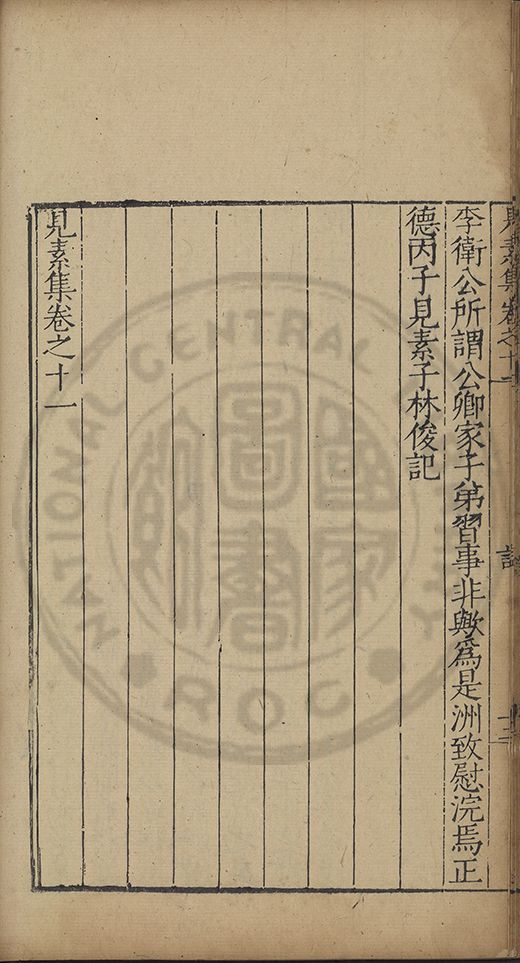 見素集卷之十一
記
李衛公所謂公卿家子弟習事非歟爲是洲致慰浣焉正
德丙子見素子林俊記
見素集卷之十一
NATIONAL CENTRAL LIBRARY
R.O.C.
國家圖書館